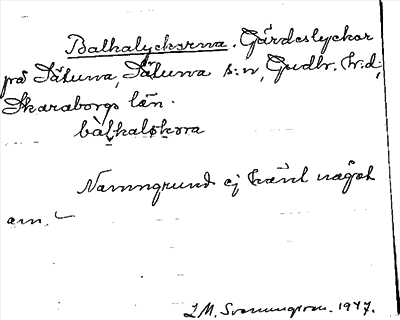 Balhalyckorna. Gärdeslyckor
på Sätuna, Sätuna s:n, Gudhr. hr:d;
Skaraborgs län.
balhaləkora
Namngrund ej känt något
om.
L.M. Svenungsson. 1947.